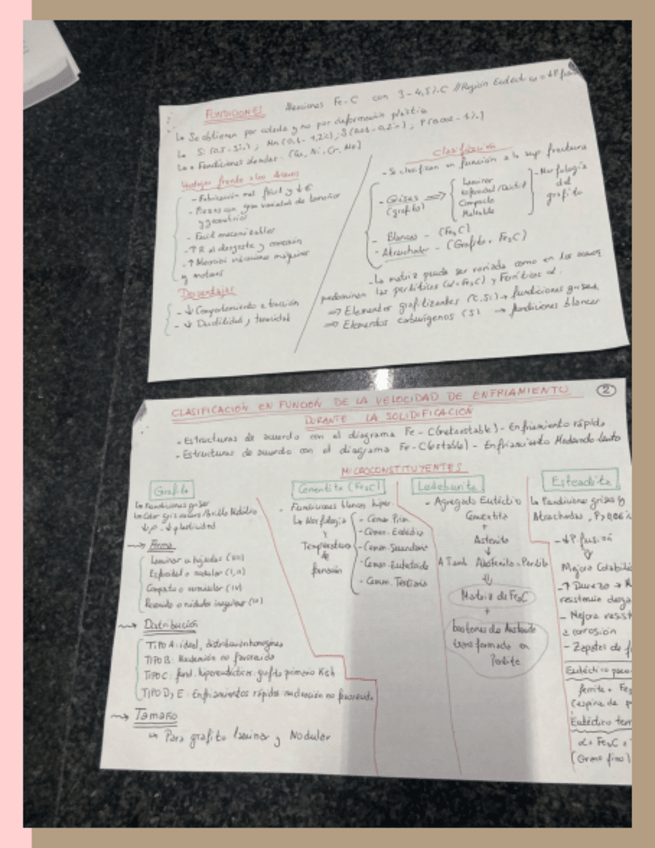 FUNDICIONES
Aleaciones Fe-C con 3-4,5%C // Región Eutéct
↳ Se obtienen por colada y no por deformación plástica
↳ Si (0,5-3%), Mn (0,4-1,2%), S (0,01-0,2%), P (0,002-1%)
↳ Fundiciones aleadas: (Cu, Ni, Cr, Mo)
Ventajas frente a los Aceros
- Fabricación más fácil y ↓€
- Piezas con gran variedad de tamaños
y geometrías
- Fácil mecanizables
- ↑R al desgaste y corrosión
- ↑Absorción vibraciones máquinas
y motores
Desventajas
- ↓ Comportamiento a tracción
- ↓ Ductilidad y tenacidad
Clasificación
- Se clasifican en función a la sup. fractura
- Grises ⇒
(grafito)
Laminar
Esferoidal/Ductil
Compacto
Maleable
- Morfología
del
grafito
- Blancas - (Fe3C)
- Atruchadas - (Grafito + Fe3C)
- La matriz puede ser variada como en los aceros
predominan las perlíticas (α+Fe3C) y Ferríticas α.
⇒ Elementos grafitizantes (C, Si) → fundiciones grises
⇒ Elementos carburígenos (S) → fundiciones blancas
CLASIFICACIÓN EN FUNCIÓN DE LA VELOCIDAD DE ENFRIAMIENTO 2
DURANTE LA SOLIDIFICACIÓN
- Estructuras de acuerdo con el diagrama Fe-C (metaestable) - Enfriamiento rápido
- Estructuras de acuerdo con el diagrama Fe-C (estable) - Enfriamiento Moderado-lento
MICROCONSTITUYENTES
Grafito
↳ Fundiciones grises
↳ Color gris oscuro
↓ρ - ↓plasticidad
→ Forma
Laminar u hojuelas
Esferoidal o nodular
Compacto o vermicular
Revenido o nódulos irregulares
→ Distribución
TIPO A: ideal, distribución homogénea
TIPO B: Nucleación no favorecida
TIPO C: fund. hipereutécticas grafito primario Kish
TIPO D, E: Enfriamientos rápidos nucleación no favorecida
→ Tamaño
↳ Para grafito laminar y Nodular
Cementita (Fe3C)
- Fundiciones blancas hiper.
↳ Morfología
y
Temperatura
de
formación
- Cemen. Prim.
- Cemen. Eutéctica
- Cemen. Secundaria
- Cemen. Eutectoide
- Cemen. Terciaria
Ledeburita
- Agregado Eutéctico
Cementita
+
Austenita
↓
A Tamb Austenita → Perlita
⇓
Matriz de Fe3C
+
bastones de Austenita
transformada en
Perlita
Esteadita
↳ Fundiciones grises y
Atruchadas, P>0,06%
- ↓P fusión
⇓
Mejora Colabili
- ↑ Dureza →
resistencia desga
- Mejora resist
a corrosión
- Zapatas de f
Eutéctico
ferrita + Fe
(espina de p
Eutéctico ter
α + Fe3C +
(Grano fino)